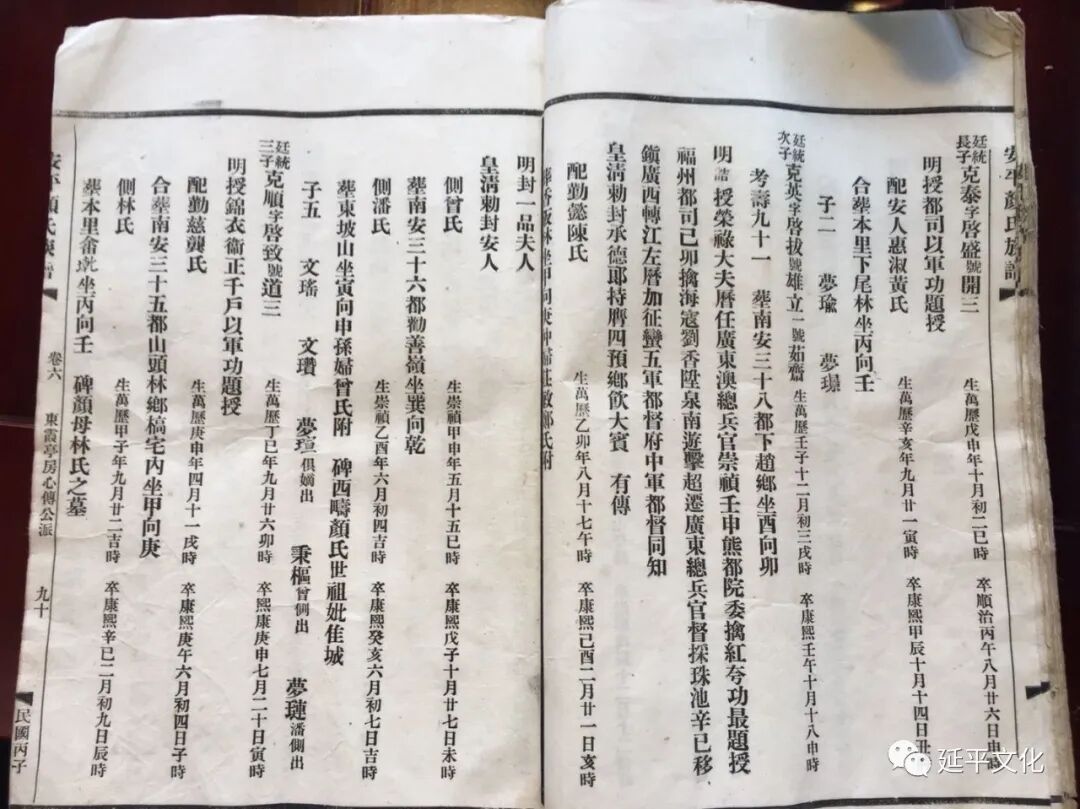 安平顏氏族譜
廷統長子 克泰字啓盛號開三 生萬歷戊申年十月初二巳時 卒順治丙午八月廿六日申時
明授都司以軍功題授
配安人惠淑黃氏 生萬歷辛亥年九月廿一寅時 卒康熙甲辰十月十四日丑
合葬本里下尾林坐丙向壬
子二 夢瑜 夢璟
廷統次子 克英字啓拔號雄立一號茹齋 生萬歷壬子十二月初三戌時 卒康熙壬午十月十八申時
考壽九十一 葬南安三十八都下趙鄉坐酉向卯
明誥授榮祿大夫曆任廣東澳總兵官崇禎壬申熊都院委擒紅夸功最題授
福州都司己卯擒海寇劉香陞泉南遊擊超遷廣東總兵官督採珠池辛巳移
鎭廣西轉江左曆加征蠻五軍都督府中軍都督同知
皇清勅封承德郎持膺四預鄉飲大賓 有傳
配勤懿陳氏 生萬歷乙卯年八月十七午時 卒康熙己酉二月廿一日亥時
林坐甲向庚
明封一品夫人
皇清勅封安人
側曾氏 生崇禎甲申年五月十五巳時 卒康熙戊子十月廿七日未時
葬南安三十六都勸善嶺坐巽向乾
側潘氏 生崇禎乙酉年六月初四吉時 卒康熙癸亥六月初七日吉時
葬東坡山坐寅向申孫婦曾氏附 碑西疇顏氏世祖妣佳城
子五 文瑤 文瓚 夢瑄俱嫡出 秉樞曾側出 夢璉潘側出
廷統三子 克順字啓致號道三 生萬歷丁巳年九月廿六卯時 卒熙康庚申七月二十日寅時
明授錦衣衞正千戶以軍功題授
配勤慈龔氏 生萬歷庚申年四月十一戌時 卒康熙庚午六月初四日子時
合葬南安三十五都山頭林鄉槁宅內坐甲向庚
側林氏 生萬歷甲子年九月廿二吉時 卒康熙辛巳二月初九日辰時
葬本里坐丙向壬 碑顏母林氏之墓
安平顏氏族譜 卷六 東霞亭房心傳公派 九十 民國丙子
延平文化